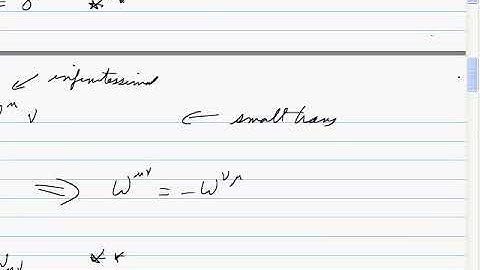 = 0 **
↙ infinitessimal
μ ν ← small trans
⇒ ω^{μν} = -ω^{νμ}
μν **